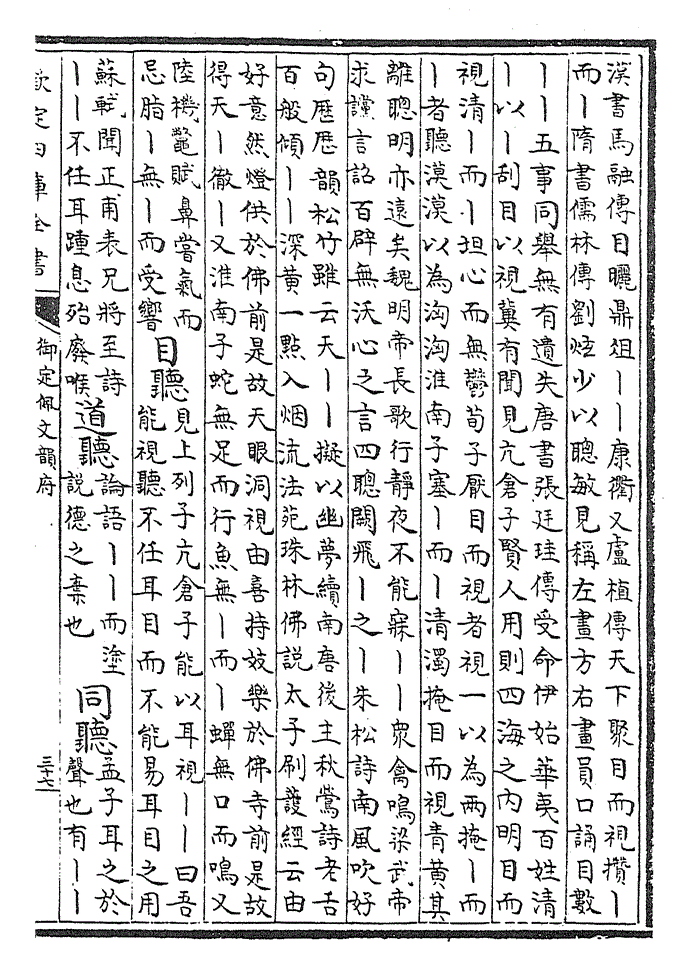 漢書馬融傳目矖鼎俎丨丨康衢又盧植傳天下聚目而視攢丨
而丨隋書儒林傳劉炫少以聰敏見稱左畫方右畫員口誦目數
丨丨五事同舉無有遺失唐書張廷珪傳受命伊始華夷百姓清
丨以丨刮目以視冀有聞見亢倉子賢人用則四海之内明目而
視清丨而丨坦心而無鬱荀子厭目而視者視一以為兩掩丨而
丨者聽漠漠以為洶洶淮南子塞丨而丨清濁掩目而視青黄其
離聰明亦遠矣魏明帝長歌行靜夜不能寐丨丨衆禽鳴梁武帝
求讜言詔百辟無沃心之言四聰闕飛丨之丨朱松詩南風吹好
句歴歴韻松竹雖云天丨丨擬以幽夢續南唐後主秋鶯詩老舌
百般傾丨丨深黄一點入烟流法苑珠林佛說太子刷護經云由
好意然燈供於佛前是故天眼洞視由喜持妓樂於佛寺前是故
得天丨徹丨又淮南子蛇無足而行魚無丨而丨蟬無口而鳴又
陸機鼈賦鼻嘗氣而
忌脂丨無丨而受響
目聽
見上列子亢倉子能以耳視丨丨曰吾
能視聽不任耳目而不能易耳目之用
蘇軾聞正甫表兄將至詩
丨丨不任耳踵息殆廢喉
道聽
論語丨丨而塗
說德之棄也
同聽
孟子耳之於
聲也有丨丨
欽定四庫全書
御定佩文韻府
三十七